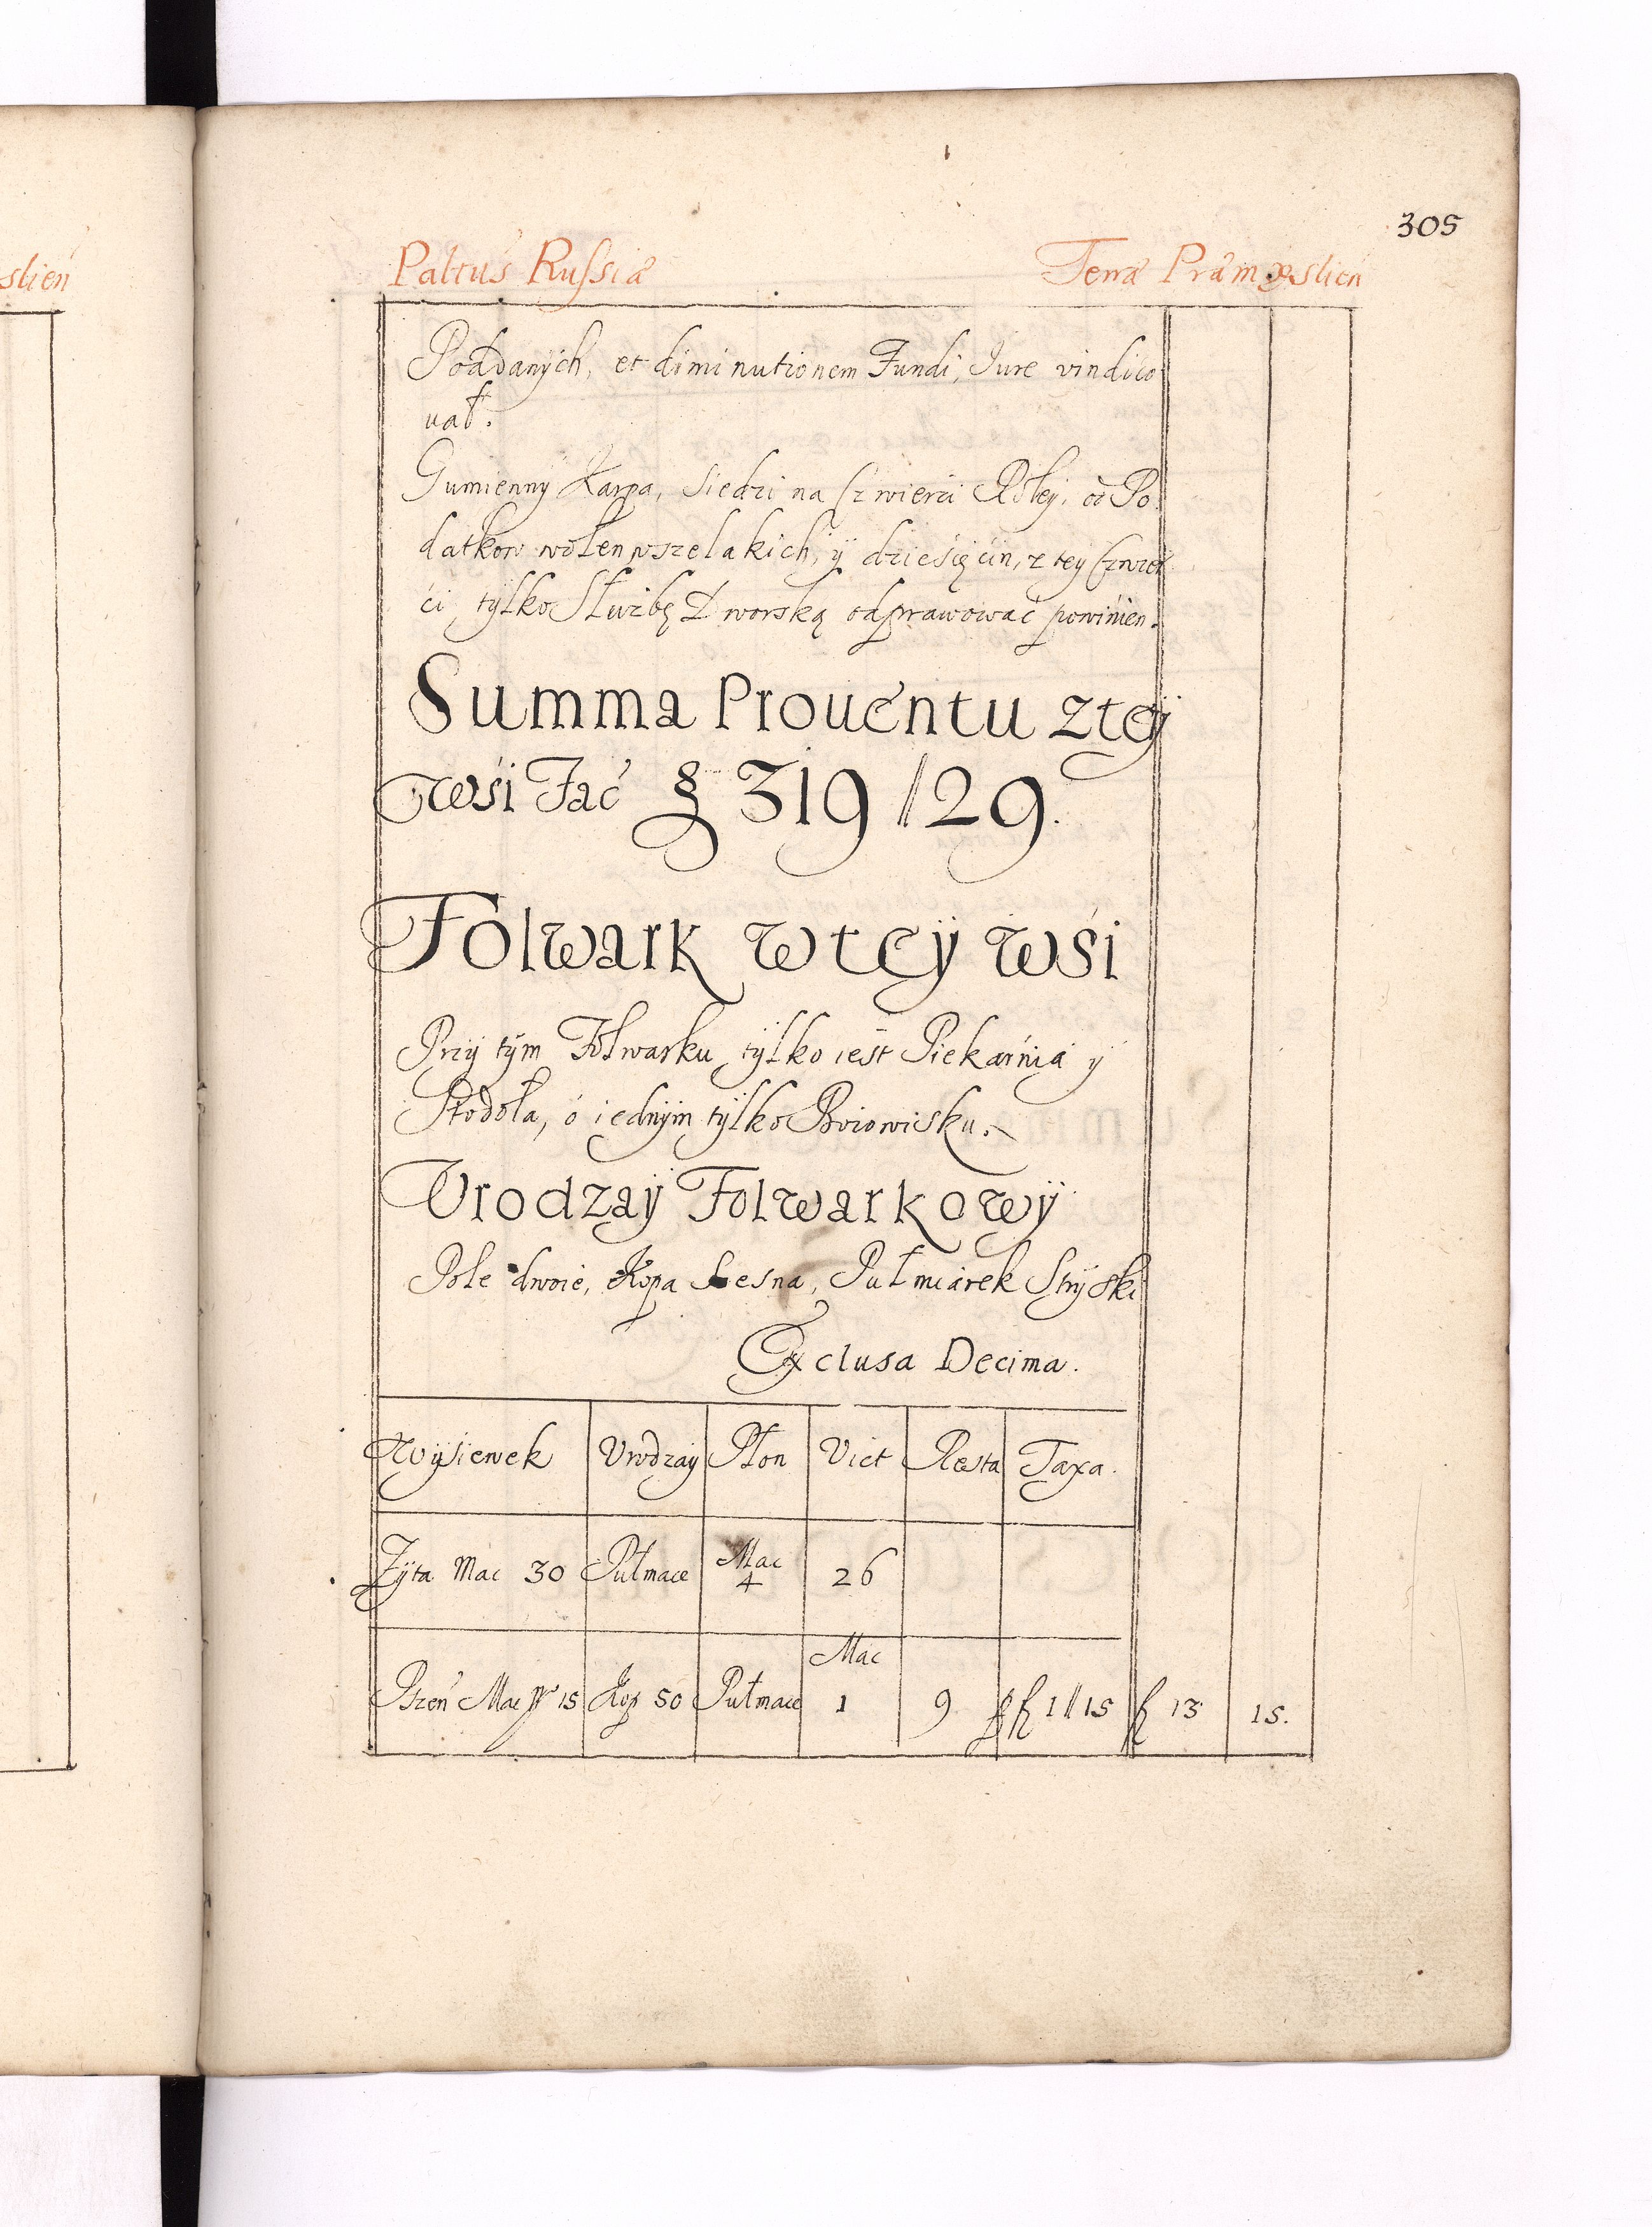 305
slień
Paltus Russiæ Terræ Præmysslień
Poddanÿch, et diminutionem Fundi, Iure vindico
uał.
Gumiennÿ Karpa, siedzi na Czwierci Roleÿ, od Po
datkow wolen wszelakich, ÿ dziesięcin, z teÿ Czwier
ći, tÿlko Służbę Dworską odprawować powinien.
Summa Prouentu zteÿ
wśi Fać 319//29.
Folwark w teÿ wśi
Przÿ tÿm Folwarku tÿlko iest Piekarnia ÿ
Stodoła, o iednÿm tÿlko Boiowisku.
Vrodzaÿ Folwarkowÿ
Pole dwoie, Kopa Lesna, Pułmiarek Strÿski
Exclusa Decima.
Wÿsiewek Vrodzaÿ Płon Vict Resta Taxa.
Zÿta Mac 30 Pułmace Mac 4 26
Pszeń Mac 15 Kop 50 Pułmace Mac 1 9 fl 1//15 fl 13 15.